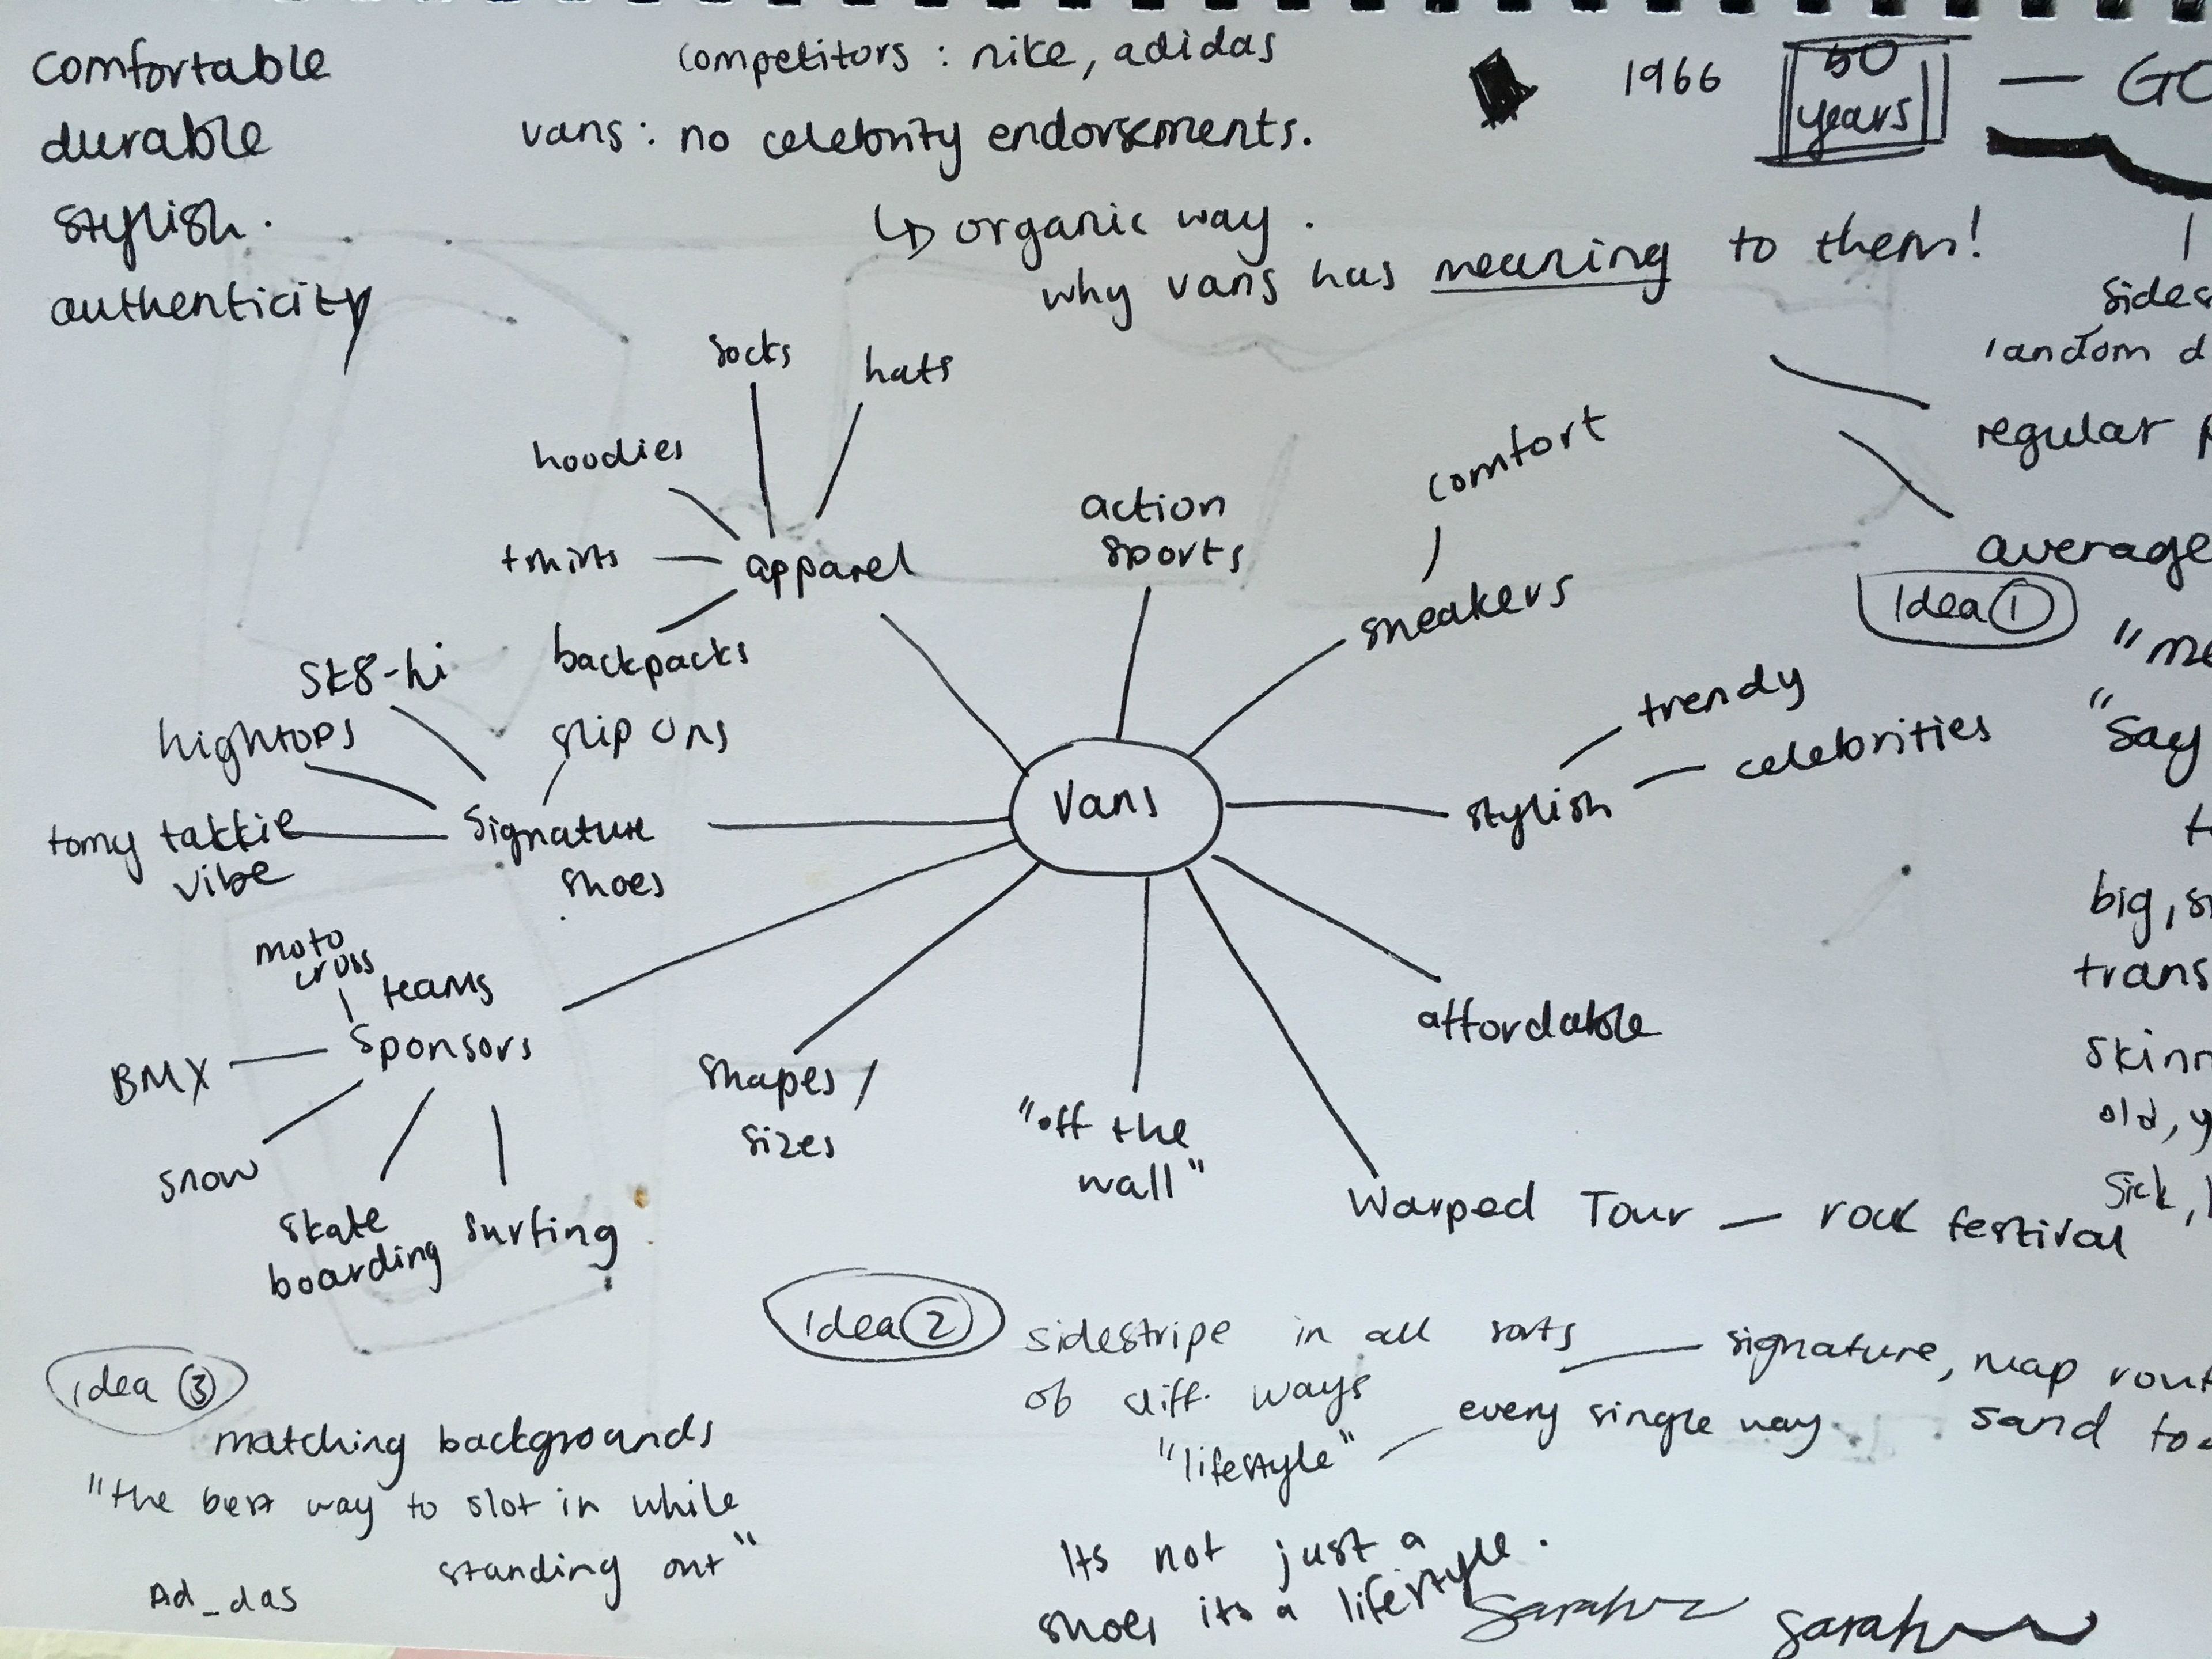 comfortable
durable
stylish.
authenticity
competitors : nike, adidas
vans : no celebrity endorsements.
↳ organic way.
why vans has meaning to them!
1966
50
years
— GO
sides
random d
regular p
average
Idea ①
"me
"Say
to
big, s
trans
skinn
old, y
sick,
socks
hats
hoodies
tshirts
apparel
backpacks
action
sports
comfort
sneakers
trendy
celebrities
stylish
Vans
sk8-hi
hightops
slip ons
tomy takkie
vibe
Signature
shoes
moto
cross
teams
Sponsors
BMX
snow
skate
boarding
surfing
shapes /
sizes
"off the
wall"
affordable
Warped Tour — rock festival
idea ②
sidestripe in all sorts
of diff. ways
signature, map rout
"lifestyle" — every single way.
sand to
Its not just a
shoes its a lifestyle.
Sarah
Sarah
idea ③
matching backgrounds
"the best way to slot in while
standing out"
Ad_das